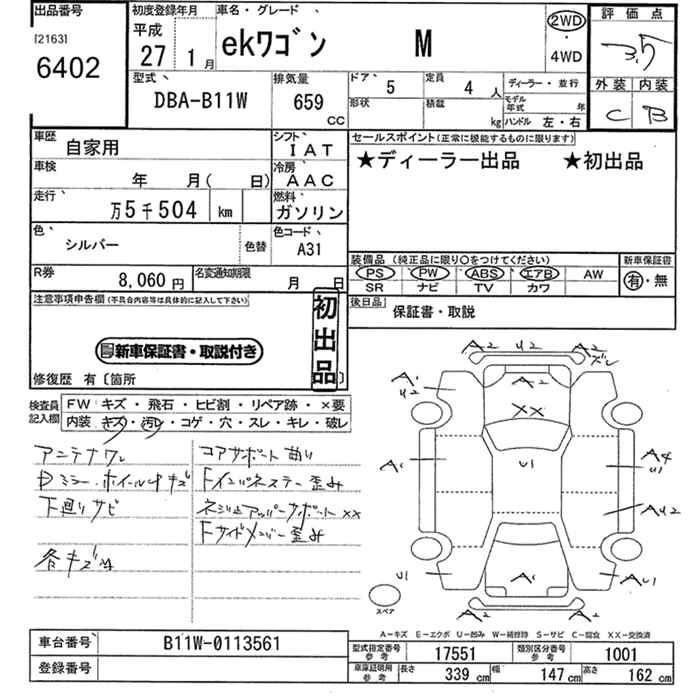 出品番号
[2163]
6402
初度登録年月
平成
27 1月
車名・グレード
ekワゴン M
2WD
・
4WD
評価点
3.5
外装 内装
C B
型式
DBA-B11W
排気量
659
CC
ドア 5
形状
定員 4 人
積載 kg
ディーラー・並行
モデル年式 年
ハンドル 左・右
車歴 自家用
シフト IAT
車検 年 月( 日)
冷房 AAC
走行 万5千504 km
燃料 ガソリン
色 シルバー 色替
色コード A31
R券 8,060円
名変通知期限 月 日
セールスポイント(正常に機能するものに限ります)
★ディーラー出品 ★初出品
装備品(純正品に限り○をつけてください)
PS PW ABS エアB AW
SR ナビ TV カワ
新車保証書
有・無
後日品
保証書・取説
注意事項申告欄(不具合内容等は具体的に記入して下さい)
新車保証書・取説付き
初出品
修復歴 有〔箇所 〕
検査員記入欄
FW キズ・飛石・ヒビ割・リペア跡・×要
内装 キズ・汚レ・コゲ・穴・スレ・キレ・破レ
アンテナワレ
Dミラー・ホイール小キズ
下廻りサビ
各キズ凹
コアサポート曲り
Fインパネステー歪み
ネジ止アッパーサポートXX
Fサイドメンバー歪み
A2 U2 A2
ズレ
A1
U2
A2
XX
A1 U1 A4
U1
AU2
U1 A1 AU1
A2 A2
スペア
A-キズ E-エクボ U-凹み W-補修跡 S-サビ C-腐食 XX-交換済
車台番号 B11W-0113561
登録番号
型式指定番号 参考 17551
類別区分番号 参考 1001
車庫証明用 参考 長さ 339 cm 幅 147 cm 高さ 162 cm